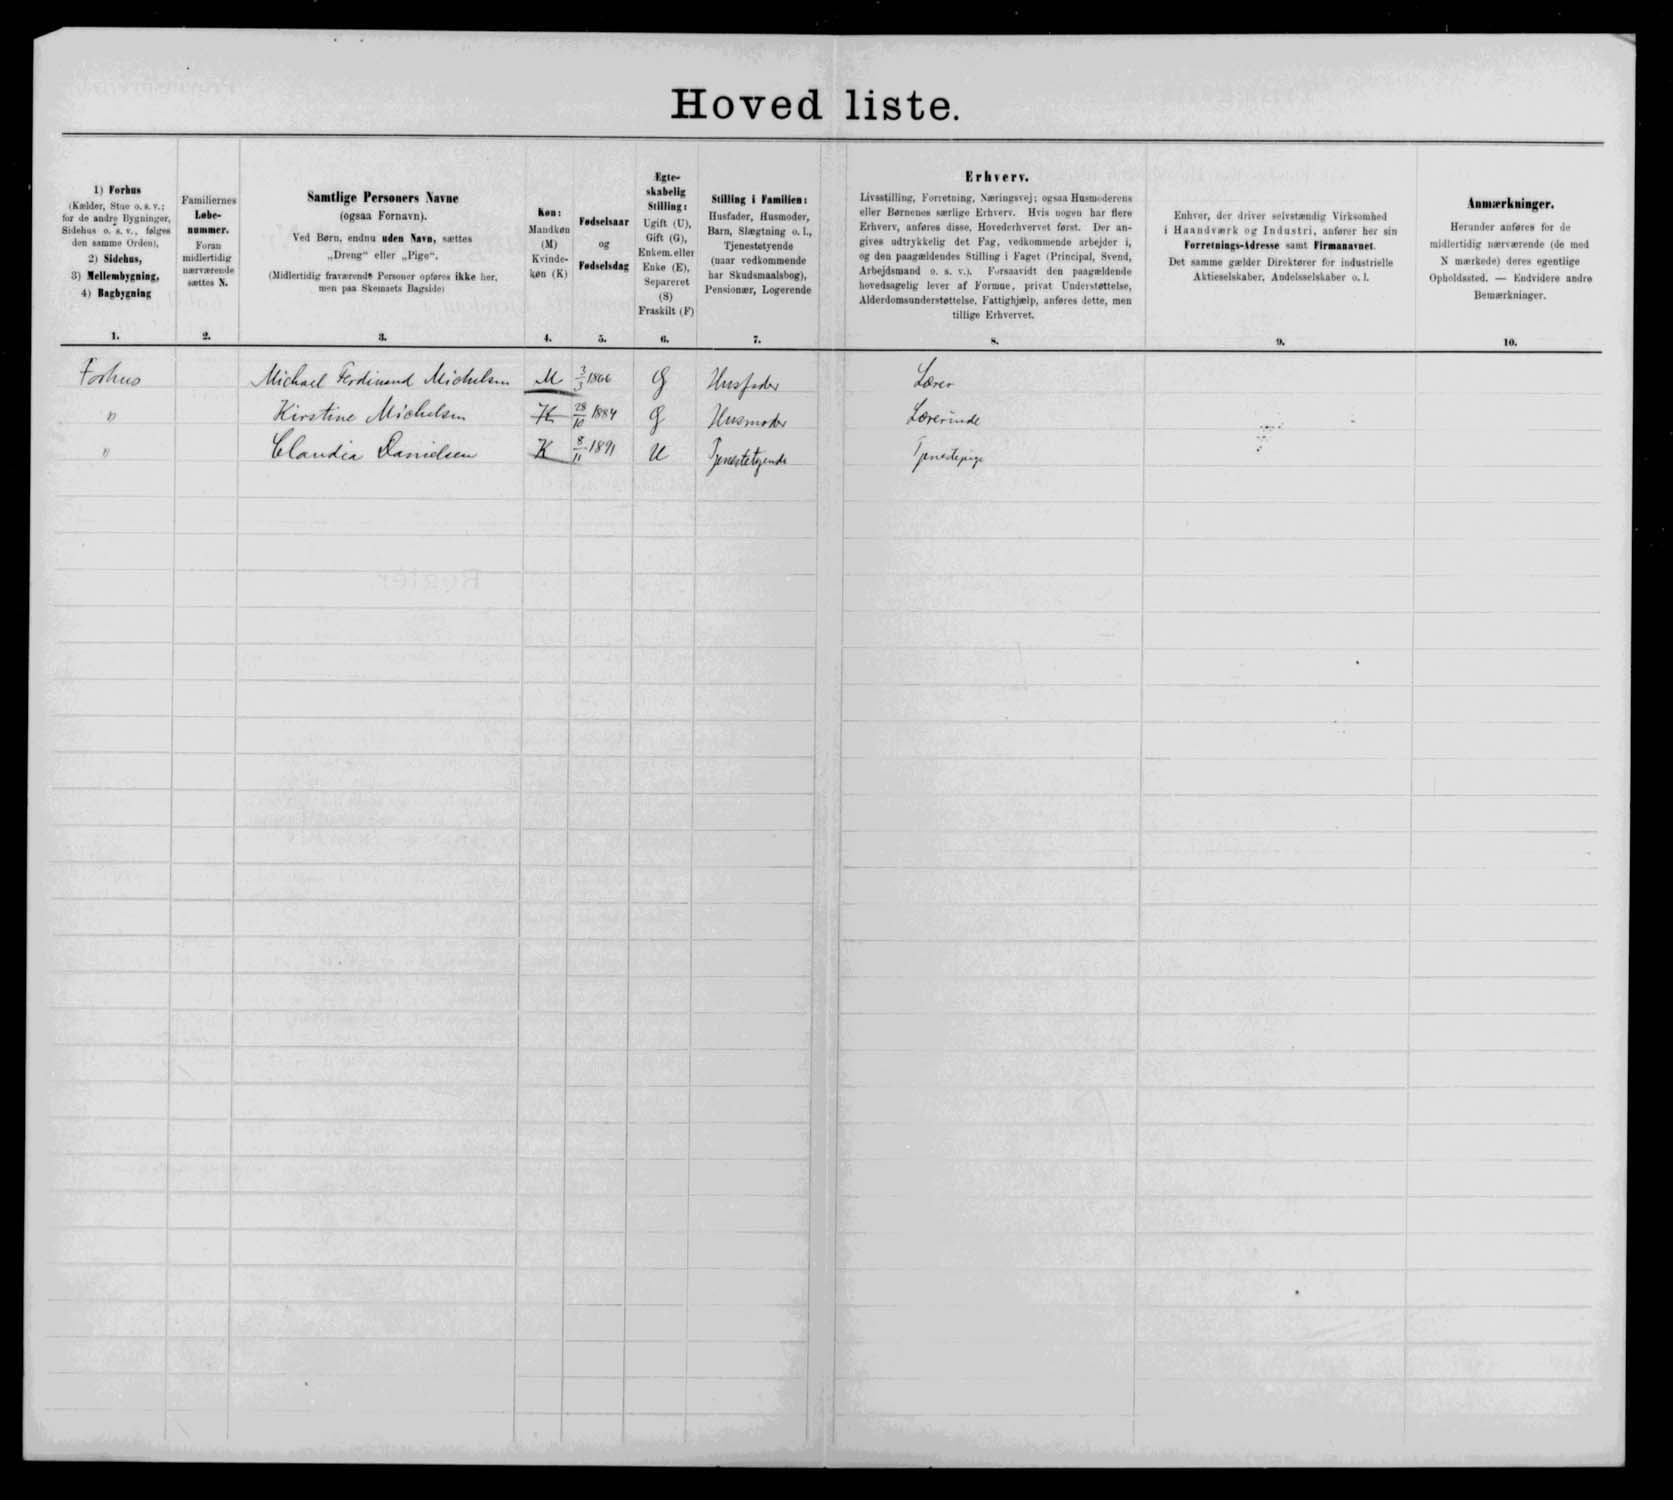 Hoved liste.
1) Forhus
(Kælder, Stue o. s. v.;
for de andre Bygninger,
Sidehus o. s. v., følges
den samme Orden),
2) Sidehus,
3) Mellembygning,
4) Bagbygning
1.
Familiernes
Løbe-
nummer.
Foran
midlertidig
nærværende
sættes N.
2.
Samtlige Personers Navne
(ogsaa Fornavn).
Ved Børn, endnu uden Navn, sættes
„Dreng“ eller „Pige“.
(Midlertidig fraværende Personer opføres ikke her,
men paa Skemaets Bagside)
3.
Køn:
Mandkøn
(M)
Kvinde-
køn (K)
4.
Fødselsaar
og
Fødselsdag
5.
Ægte-
skabelig
Stilling:
Ugift (U),
Gift (G),
Enkem. eller
Enke (E),
Separeret
(S)
Fraskilt (F)
6.
Stilling i Familien:
Husfader, Husmoder,
Barn, Slægtning o. l.,
Tjenestetyende
(naar vedkommende
har Skudsmaalsbog),
Pensionær, Logerende
7.
Erhverv.
Livsstilling, Forretning, Næringsvej; ogsaa Husmoderens
eller Børnenes særlige Erhverv. Hvis nogen har flere
Erhverv, anføres disse, Hovederhvervet først. Der an-
gives udtrykkelig det Fag, vedkommende arbejder i,
og den paagældendes Stilling i Faget (Principal, Svend,
Arbejdsmand o. s. v.). Forsaavidt den paagældende
hovedsagelig lever af Formue, privat Understøttelse,
Alderdomsunderstøttelse, Fattighjælp, anføres dette, men
tillige Erhvervet.
8.
Enhver, der driver selvstændig Virksomhed
i Haandværk og Industri, anfører her sin
Forretnings-Adresse samt Firmanavnet.
Det samme gælder Direktører for industrielle
Aktieselskaber, Andelsselskaber o. l.
9.
Anmærkninger.
Herunder anføres for de
midlertidig nærværende (de med
N mærkede) deres egentlige
Opholdssted. — Endvidere andre
Bemærkninger.
10.
Forhus Michael Ferdinand Michelsen M 3/3 1866 G Husfader Lærer
" Kirstine Michelsen K 28/10 1884 G Husmoder Lærerinde
" Claudia Danielsen K 8/11 1891 U Tjenestetyende Tjenestepige